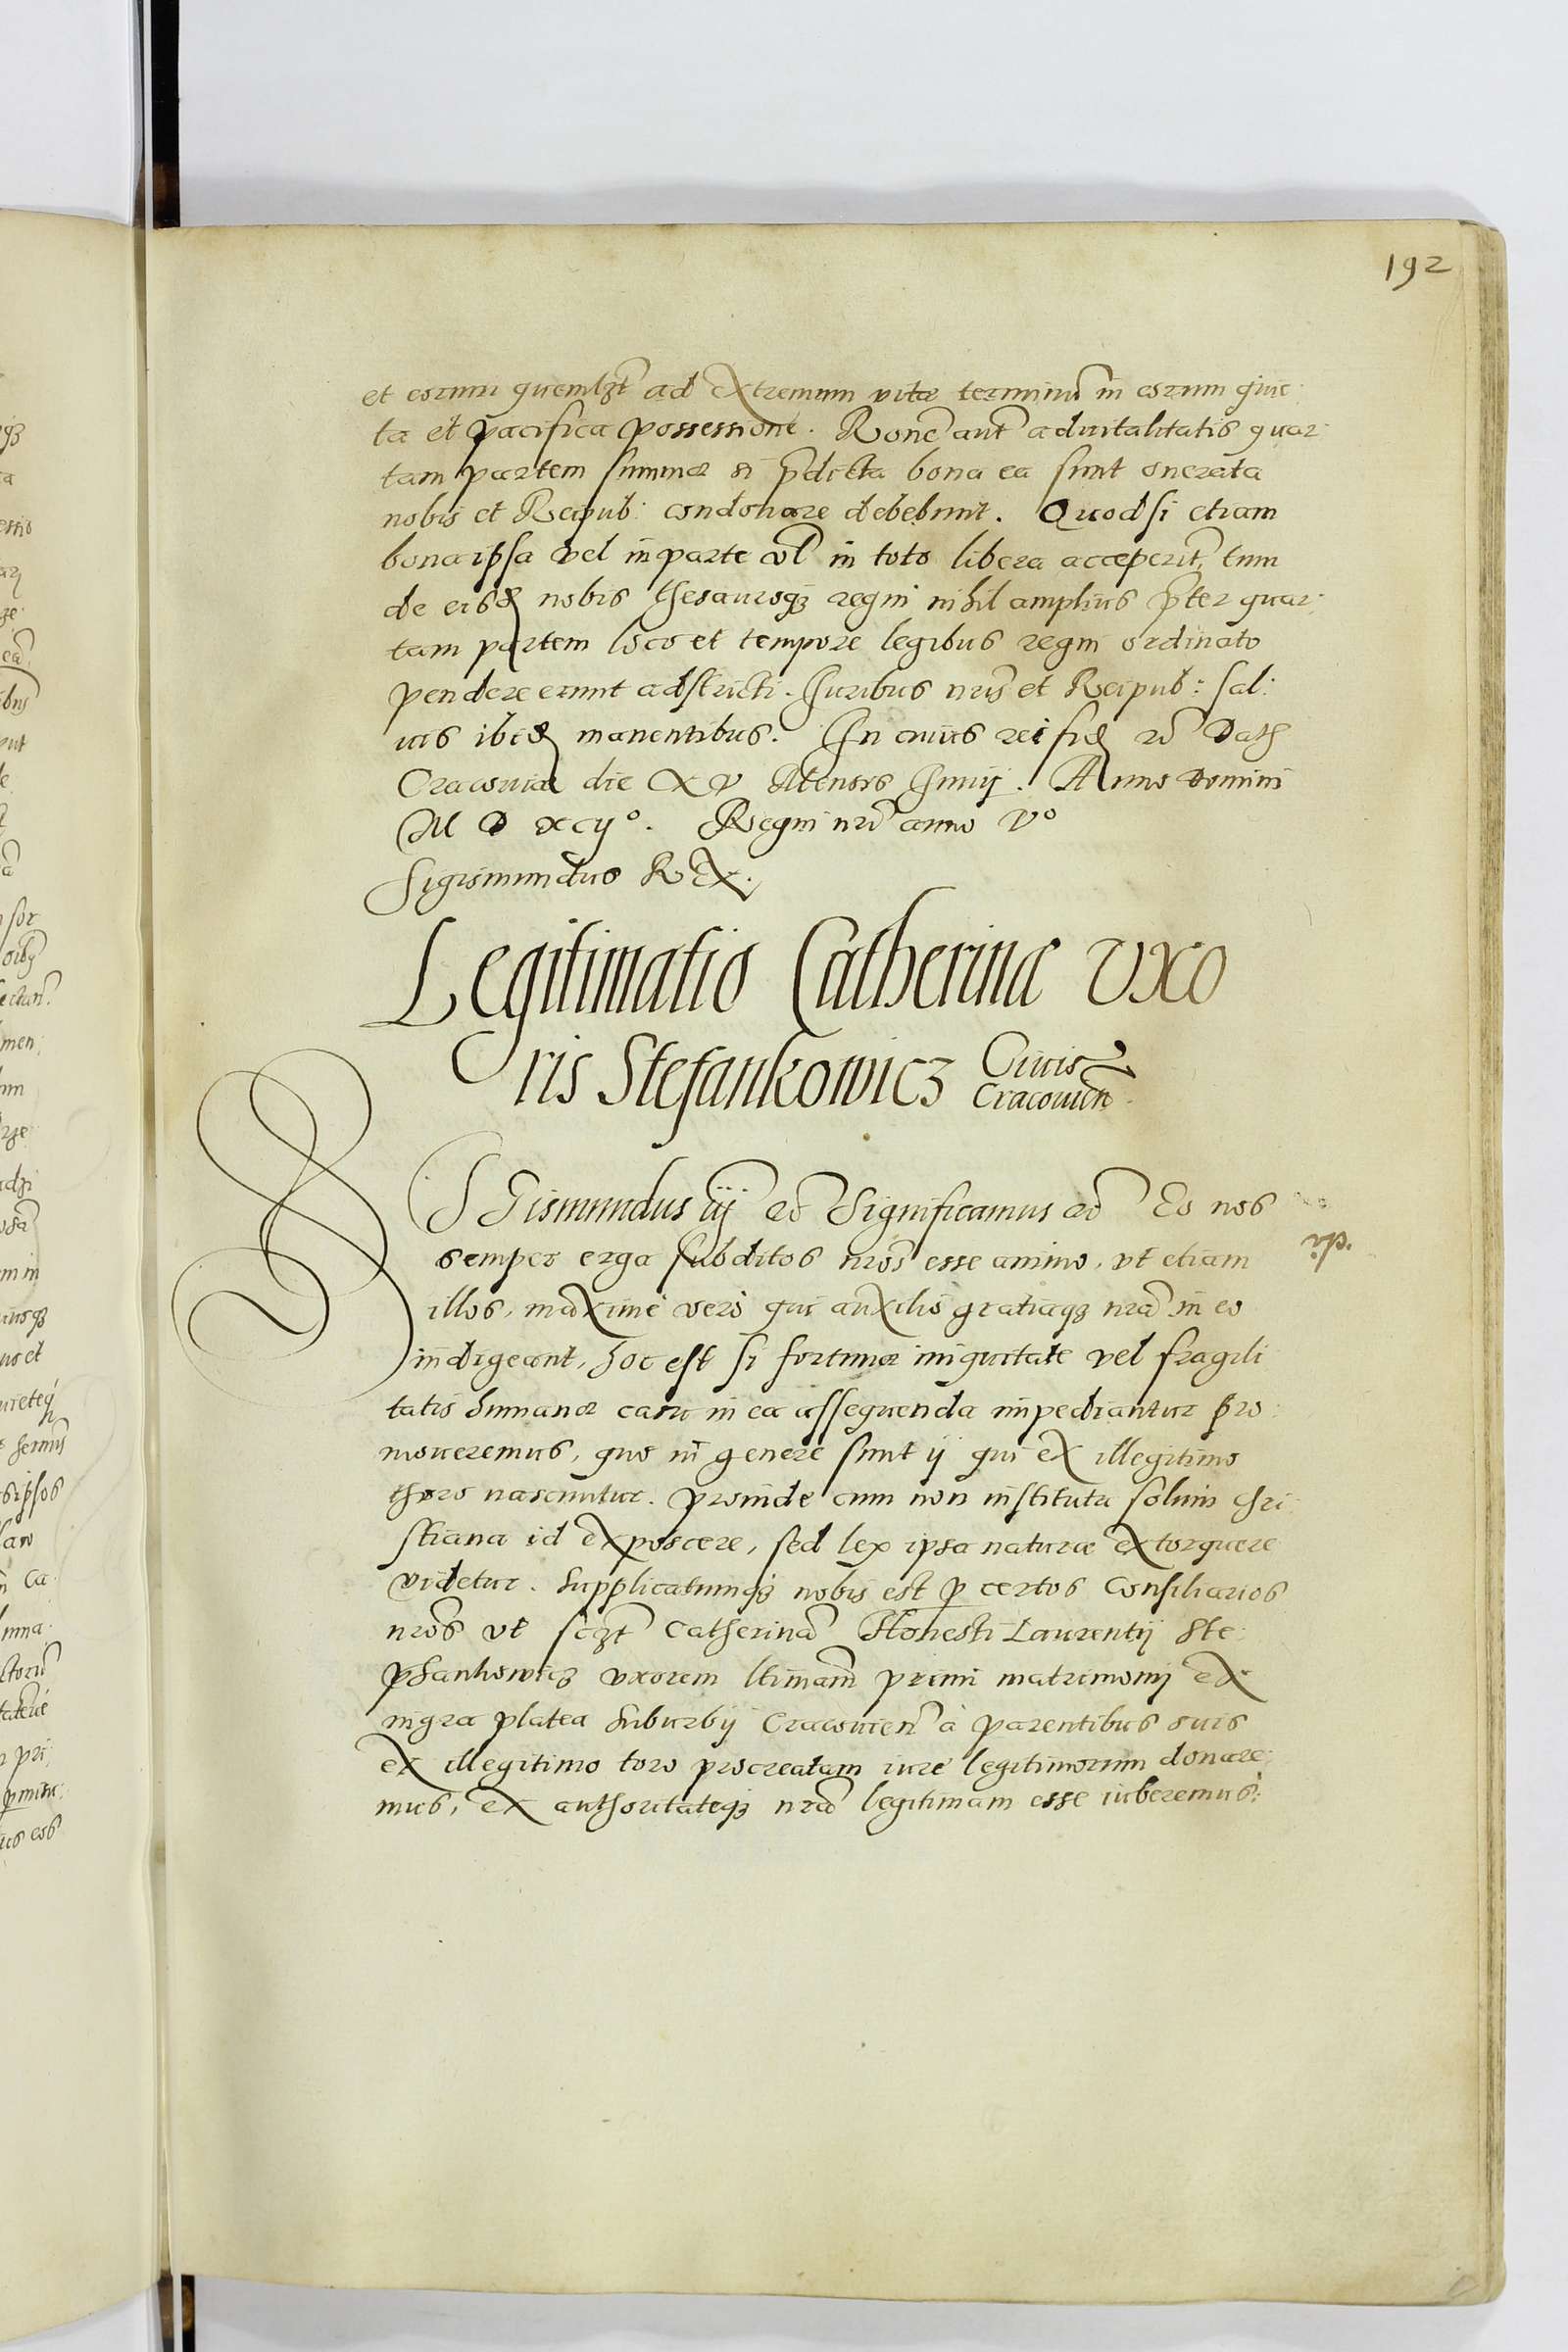 192
et eorum quemlzt ad extremum vitæ terminũ in eorum quie:
ta et pacifica possessione. Ronẽ aut̃ aduitalitatis quar:
tam partem summæ si p̃dicta bona ea sunt onerata
nobis et Reipub: condonare debebunt. Quodsi etiam
bona ipsa vel in parte vl̃ in toto libera acceperit̃, tum
de eisd nobis thesauroqz regni nihil amplius p̃ter quar:
tam partem loco et tempore legibus regni ordinato
pendere erunt adstricti. Iuribus nris̃ et Reipub: sal:
uis ibid manentibus. In cuius rei fid etc̃ Dat
Cracouiæ die XV Mensis Iunij. Anno Domini
M D XCijº. Regni nrĩ anno Vº
Sigismundus REX.
Legitimatio Catherinæ Vxo
ris Stefankowicz Ciuis
Cracouieñ
SIGismundus iij etc̃ Significamus etc̃ Eo nos
semper erga subditos nros̃ esse animo, vt etiam
illos, maxime vero qui auxilio gratiaqz nrã in eo
indigeant, hoc est si fortunæ iniquitate vel fragili
tatis humanæ casu in ea assequenda impediantur pro:
moueremus, quo in genere sunt ij qui ex illegitimo
thoro nascuntur. Proinde cum non instituta solum chri:
stiana id exposcere, sed lex ipsa naturæ extorquere
videtur. Supplicatumqz nobis est p certos Consiliarios
nros̃ vt sczt̃ Catherinã Honesti Laurentij Ste:
phankowicz vxorem ltimam̃ primi matrimonij ex
nigra platea suburbij Cracouieñ à parentibus suis
ex illegitimo toro procreatam iure legitimorum donare:
mus, ex authoritateqz nrã legitimam esse iuberemus: